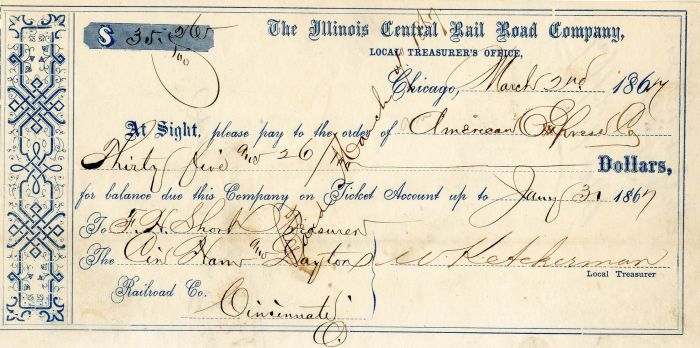 $ 35.26/100
The Illinois Central Rail Road Company,
LOCAL TREASURER'S OFFICE,
Chicago, March 2nd 1867
At Sight, please pay to the order of American Express Co
Thirty five and 26/100 Dollars,
for balance due this Company on Ticket Account up to Jany 31 1867
To F. H. Short Treasurer
The Cin Ham and Dayton
Railroad Co.
Cincinnati
O.
W K Ackerman
Local Treasurer
Paid March